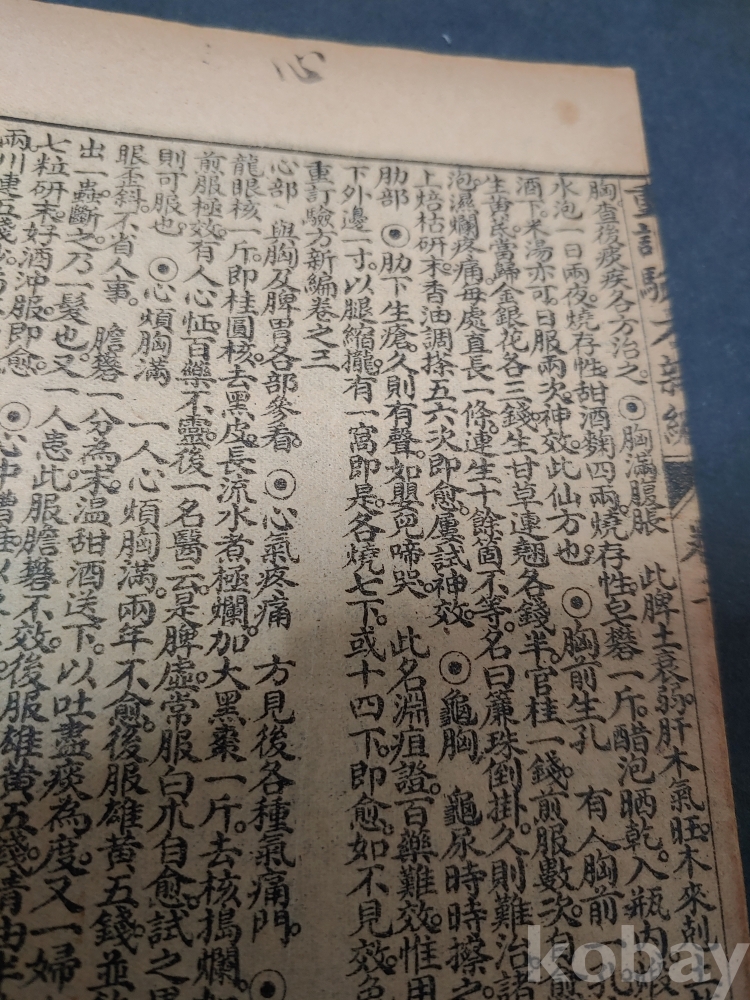 心
重訂驗方新編
胸。查後痰疾各方治之。⊙胸滿腹脹 此脾土衰弱。肝木氣旺。木來剋土
水泡一日兩夜。燒存性。甜酒麴四兩。燒存性。皂礬一斤。醋泡晒乾。入瓶內
酒下。米湯亦可。日服兩次。神效。此仙方也。⊙胸前生孔 有人胸前一孔
生黃芪。當歸。金銀花各三錢。生甘草。連翹各錢半。官桂一錢。煎服數次自愈
泡。濕爛疼痛。每處直長一條。連生十餘箇不等。名曰簾珠倒掛。久則難治。諸
上焙枯研末。香油調搽五六次即愈。屢試神效 ⊙龜胸 龜尿時時擦之
肋部 ⊙肋下生瘡。久則有聲。如嬰兒啼哭。 此名淵疽證。百藥難效。惟用
下外邊一寸。以腿縮攏。有一窩即是。各燒七下。或十四下即愈。如不見效。
重訂驗方新編卷之三
心部 與胸及脾胃各部參看 ⊙心氣疼痛 方見後各種氣痛門。⊙
龍眼核一斤。即桂圓核。去黑皮。長流水煮極爛。加大黑棗一斤。去核搗爛。
煎服極效。有人心怔。百藥不靈。後一名醫云。是脾虛。常服白朮自愈。試之果
則可服也 ⊙心煩胸滿 一人心煩胸滿。兩年不愈。後服雄黃五錢。並
眼歪斜。不省人事。 膽礬一分為末。溫甜酒送下。以吐盡痰為度。又一婦
出一蟲。斷之。乃一髮也。又一人患此。服膽礬不效。後服雄黃五錢。清油半
七粒研末。好酒沖服即愈 ⊙心中嘈雜
兩。川連五錢。